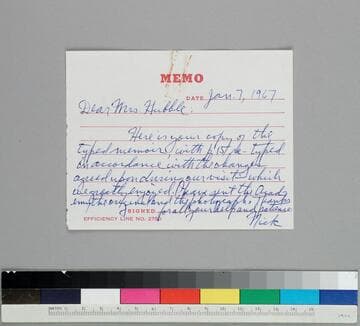 MEMO
DATE Jan. 7, 1967
Dear Mrs Hubble:
Here is your copy of the
typed memoir with p. 15 re-typed
in accordance with the changes
agreed upon during our visit - which
we greatly enjoyed. I have sent the Acad
emy the original and the photographs. Thanks
SIGNED for all your help and patience
EFFICIENCY LINE NO. Nick